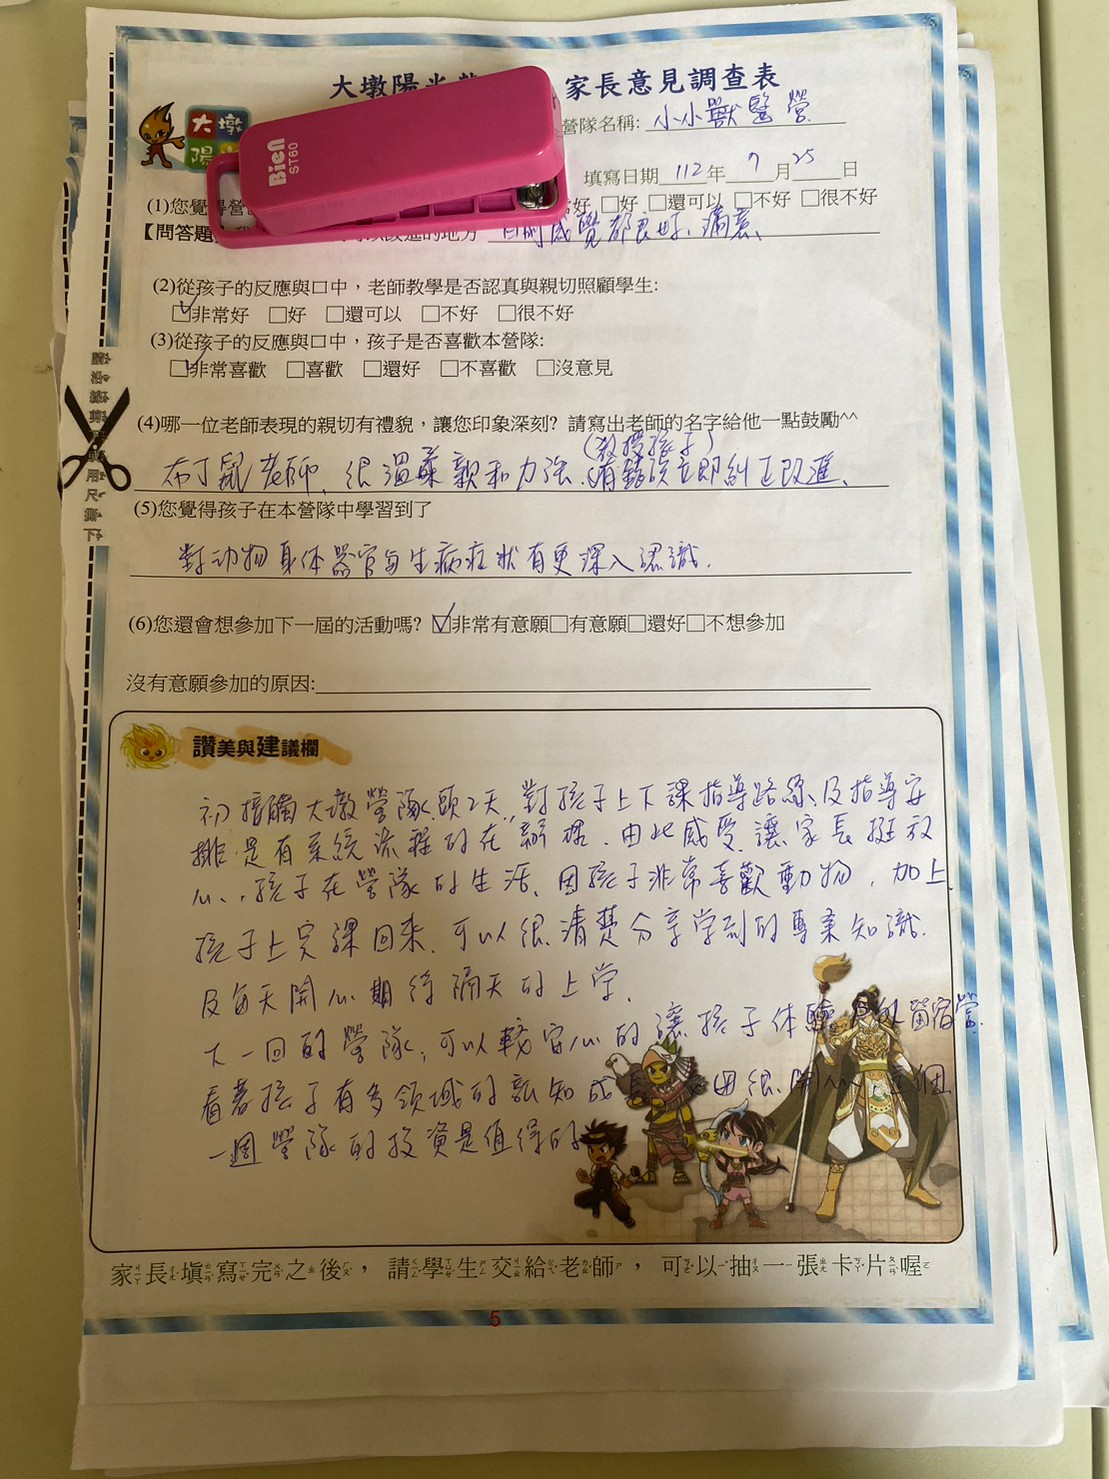 大墩陽光 家長意見調查表
大墩
陽
Bien
ST60
營隊名稱: 小小獸醫營
填寫日期 112 年 7 月 25 日
(1)您覺得營 好 □好 □還可以 □不好 □很不好
【問答題 改進的地方 目前感覺都良好、滿意、
(2)從孩子的反應與口中，老師教學是否認真與親切照顧學生:
☑非常好 □好 □還可以 □不好 □很不好
(3)從孩子的反應與口中，孩子是否喜歡本營隊:
☑非常喜歡 □喜歡 □還好 □不喜歡 □沒意見
(4)哪一位老師表現的親切有禮貌，讓您印象深刻? 請寫出老師的名字給他一點鼓勵^^
(教授孩子)
布丁鼠老師、很溫柔親和力強、有錯誤立即糾正改進、
(5)您覺得孩子在本營隊中學習到了
對动物身体器官与生病症狀有更深入認識.
(6)您還會想參加下一屆的活動嗎? ☑非常有意願□有意願□還好□不想參加
沒有意願參加的原因:
讚美與建議欄
初接觸大墩營隊頭2天,對孩子上下課指導路線及指導安
排.是有系統流程的在辦理.由此感受讓家長挺放
心.,孩子在營隊的生活、因孩子非常喜歡動物,加上
孩子上完課回來.可以很清楚分享学到的專業知識.
及每天開心期待隔天的上学.
大一回的營隊,可以較安心的讓孩子體驗 宿營.
看著孩子有多領域的認知成長 很開心 這個
一週營隊的投資是值得的
家長填寫完之後，請學生交給老師，可以抽一張卡片喔
5